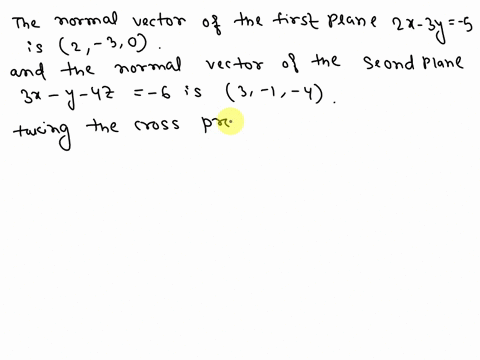 The normal vector of the first plane 2x-3y=-5
is (2,-3,0).
and the normal vector of the second plane
3x-y-4z =-6 is (3,-1,-4).
tacing the cross pr